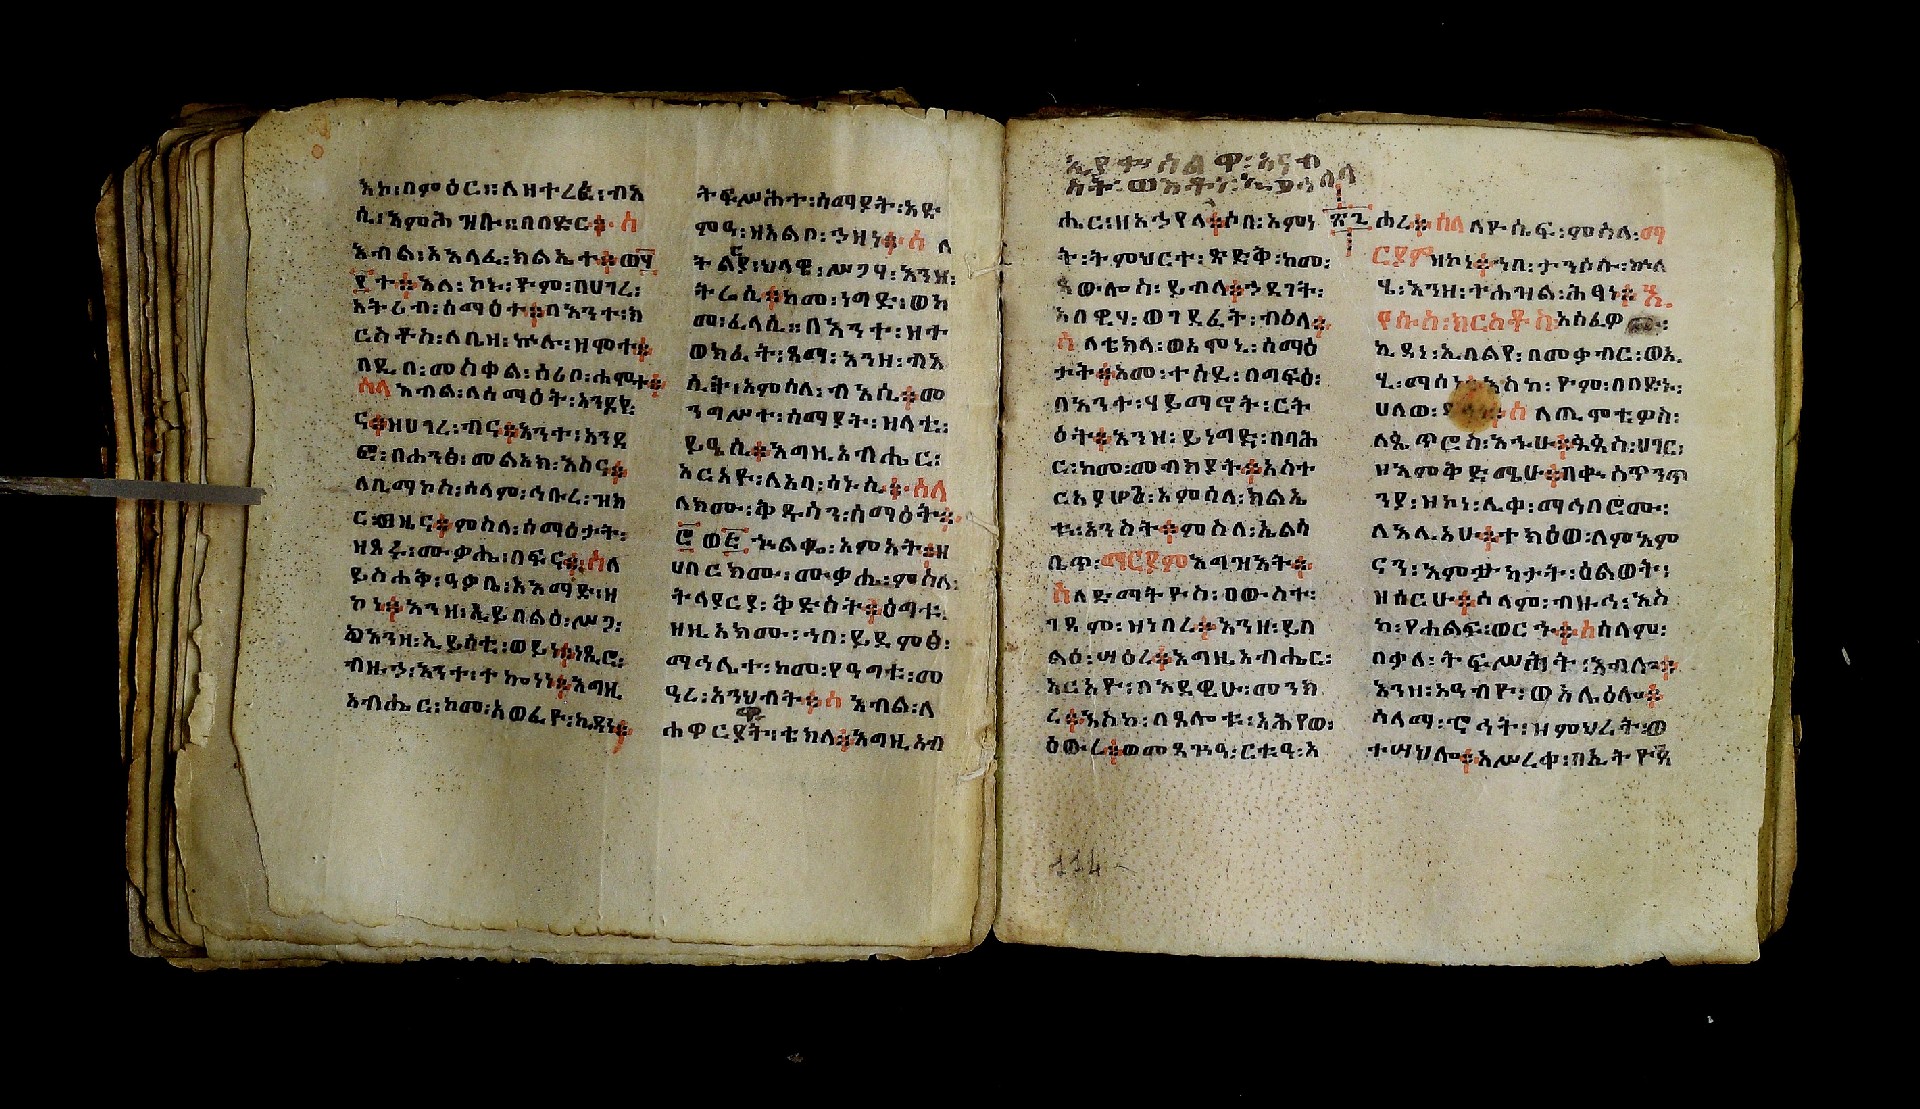 እከ፡በምዕር፡፡ለዘተረፈ፡ብእ
ሲ፡እምሕዝቡ፡፡በበድር፨ ስ
እብል፡እእላፈ፡ክልኤተ፨ወ፶
፻ተ፨እለ፡ኮኑ፡ዮም፡በሀገረ፡
አትሪብ፡ሰማዕተ፨በእንተ፡ክ
ርስቶስ፡ለቤዛ፡ኵሉ፡ዘሞተ፨
በዲበ፡መስቀል፡ሰሪቦ፡ሐሞተ፨
ሰላ እብል፡ለሰማዕት፡እንድ
ና፨ዘሀገረ፡ብና፨እንተ፡እንደ
ፎ፡በሐንፀ፡መልአክ፡እስና፨
ለቢማኮስ፡ሰላም፡ኅቡረ፡ዝክ
ር፡ዜና፨ምስለ፡ሰማዕታት፡
ዘጸሩ፡ሙቃሔ፡በፍና፨ ሰለ
ይስሐቅ፡ዓቃቤ፡አእማድ፡ዘ
ኮነ፨እንዘ፡ኢይበልዕ፡ሥጋ፡
ወእንዘ፡ኢይሰቲ፡ወይነ፨ነጺሮ፡
ብዙኃ፡እንተ፡ተኰነነ፨እግዚ
አብሔር፡ከመ፡አወፈዮ፡ኪዳነ፨
ትፍሥሕተ፡ሰማያት፡አድ
ምዓ፡ዘአልቦ፡ኃዘነ፨ ስ ለ
ትልያ፡ህላዌ፡ሥጋሃ፡እንዘ፡
ትሬሲ፨ከመ፡ነግድ፡ወከ
መ፡ፈላሲ፡፡በእንተ፡ዘተ
ወክፈት፡ጻማ፡እንዘ፡ብእ
ሲት፡እምሰለ፡ብእሲ፨መ
ንግሥተ፡ሰማያት፡ዘላቲ፡
ይዔሲ፨እግዚአብሔር፡
እርአዮ፡ለአባ፡ሰኑሲ፨ ሰለ
ለክሙ፡ቅዱሳን፡ሰማዕት፨
፼ወ፩ኍልቈ፡አምአት፨ዘ
ሀበርክሙ፡ሙቃሔ፡ምስለ፡
ትላያርያ፡ቅድስት፨ዕጣቲ
ዘዚአክሙ፡ኀበ፡ይደምፅ፡
ማኅሌተ፡ከመ፡የዓጣቲ፡መ
ዓረ፡እንህብት፨ሰ እብል፡ለ
ሐዋርያት፡ቴክላ፨እግዚአብ
ሔር፡ዘአኃየላ፨ሶበ፡እምነ
ት፡ትምህርተ፡ጽድቅ፡ከመ፡
ጳውሎስ፡ይብላ፨ኃደገት፡
አበዊሃ፡ወገደፈት፡ብዕለ፨
ሰ ላቴክላ፡ወእሞኒ፡ሰማዕ
ታት፨እመ፡ተሰደ፡በግፍዕ፡
በእንተ፡ሃይማኖት፡ርት
ዕት፨እንዘ፡ይነግድ፡በባሕ
ር፡ከመ፡መብክያት፨አስተ
ርአያሆን፡እምሰለ፡ክልኤ
ቲ፡አንስት፨ምስለ፡ኤልሳ
ቤጥ፡ማርያምእግዝእት፨
ሰለድማትዮስ፡በውስተ፡
ገዳም፡ዝነበረ፨እንዘ፡ይበ
ልዕ፡ሣዕረ፨እግዚአብሔር፡
እርአዮ፡በእደዊሁ፡መንክ
ረ፨እስከ፡በጸሎቱ፡አሕየወ፡
ዕውረ፨ወመጻጉዓ፡ርቱዓ፡አ
ሖረ፨ ሰለ ለዮሴፍ፡ምስለ፡ማ
ርያምዝኮነ፨ኀበ፡ታንሶሱ፡ኵለ
ሄ፡እንዘ፡ተሐዝል፡ሕፃነ፨ኢ
የሱስ፡ክርስቶስ፡አስፈዎ
ኪዳነ፡ኢበልየ፡በመቃብር፡ወኢ
ሂ፡ማሰነ፨እስከ፡ዮም፡በበድኑ፡
ሀለወ፡ ሰ ለጢሞቴዎስ፡
ለጴጥሮስ፡እኁሁ፨ጳጳስ፡ሀገር፡
ዘእምቅድሜሁ፨በቍስጥንጥ
ንያ፡ዝኮነ፡ሊቀ፡ማኅበሮሙ፡
ለእሊአሁ፨ተክዕወ፡ለምእም
ናን፡እም ኣታት፡ዕልወት፡
ዝሰርሁ፨ሰላም፡ብዙኅ፡እስ
ከ፡የሐልፍ፡ወርኅ፨ሰሰላም፡
በቃለ፡ትፍሥሕት፡እብሎ፨
እንዘ፡አዓብዮ፡ወእሌዕሎ፨
ሰላማ፡ኖኅት፡ዝምህረት፡ወ
ተሣህሎ፨አሥረቀ፡በኢትዮጵ
114